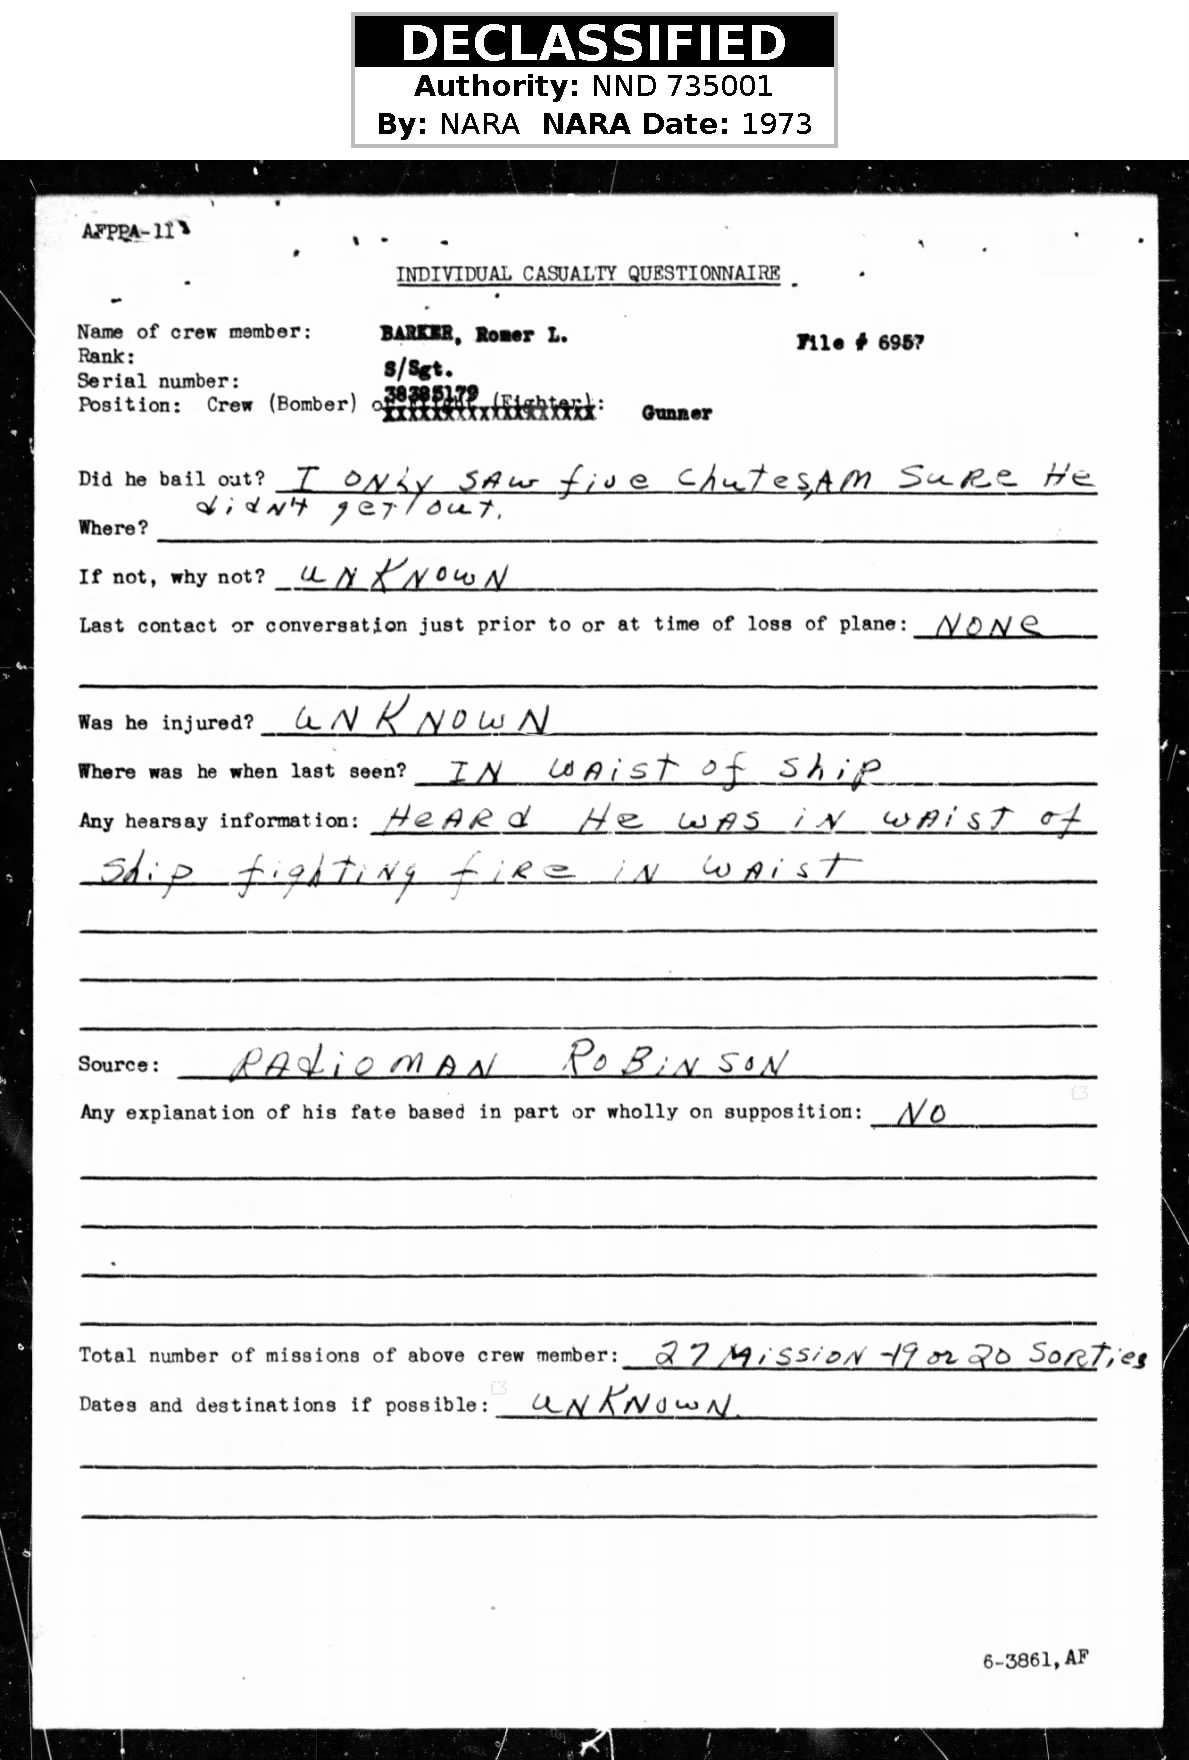 DECLASSIFIED
Authority: NND 735001
By: NARA NARA Date: 1973
AFPPA-11
INDIVIDUAL CASUALTY QUESTIONNAIRE
Name of crew member: BARKER, Romer L. File # 6957
Rank: S/Sgt.
Serial number: 38385179
Position: Crew (Bomber) or (Fighter): Gunner
Did he bail out? I ONLY SAW five ChutesAM SURE He
didN't get out.
Where?
If not, why not? UNKNOWN
Last contact or conversation just prior to or at time of loss of plane: NONe
Was he injured? UNKNOWN
Where was he when last seen? IN WAisT of Ship
Any hearsay information: HeARd He WAS iN WAisT of
Ship fighTiNg fiRe iN WAisT
Source: RAdioMAN RoBiNSON
Any explanation of his fate based in part or wholly on supposition: NO
Total number of missions of above crew member: 27 MiSSiON -19 or 20 SORTies
Dates and destinations if possible: UNKNOWN.
6-3861, AF